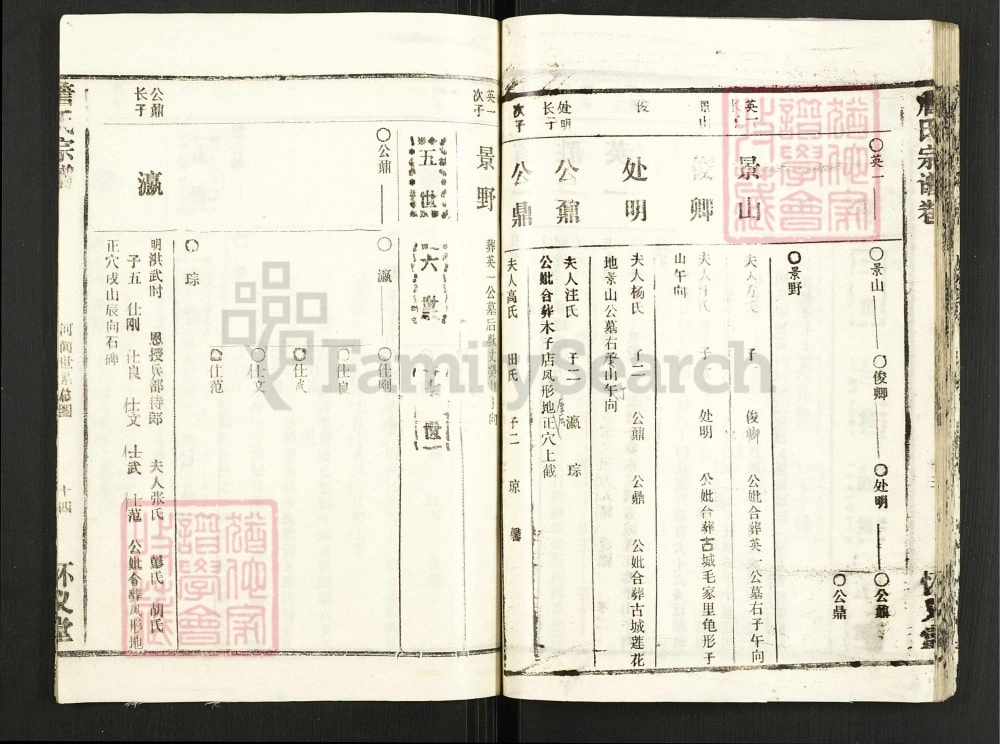 氏宗谱卷
怀义堂
○英一
○景山
○俊卿
○处明
○公鼐
○公鼎
○景野
英一
景山
夫人方氏 子 俊卿 公妣合葬英一公墓右子午向
景山
俊卿
夫人 氏 子 处明 公妣合葬古城毛家里龟形子
山午向
俊
处明
夫人杨氏 子二 公鼐 公鼎 公妣合葬古城莲花
地景山公墓右子山午向
处明长子
公鼐
夫人汪氏 子二 瀛 琮
公妣合葬木子店凤形地正穴上截
次子
公鼎
夫人高氏 田氏 子二 琼
英一次子
景野
葬英一公墓后
五世
六世
世
○公鼐
○瀛
○仕刚
○仕良
○仕武
○仕文
○仕范
○琮
公鼐长子
瀛
明洪武时 恩授兵部侍郎 夫人张氏 彭氏 胡氏
子五 仕刚 仕良 仕文 仕武 仕范 公妣合葬凤形地
正穴戌山辰向石碑
氏宗谱
河间世系总图
十四
怀义堂
FamilySearch